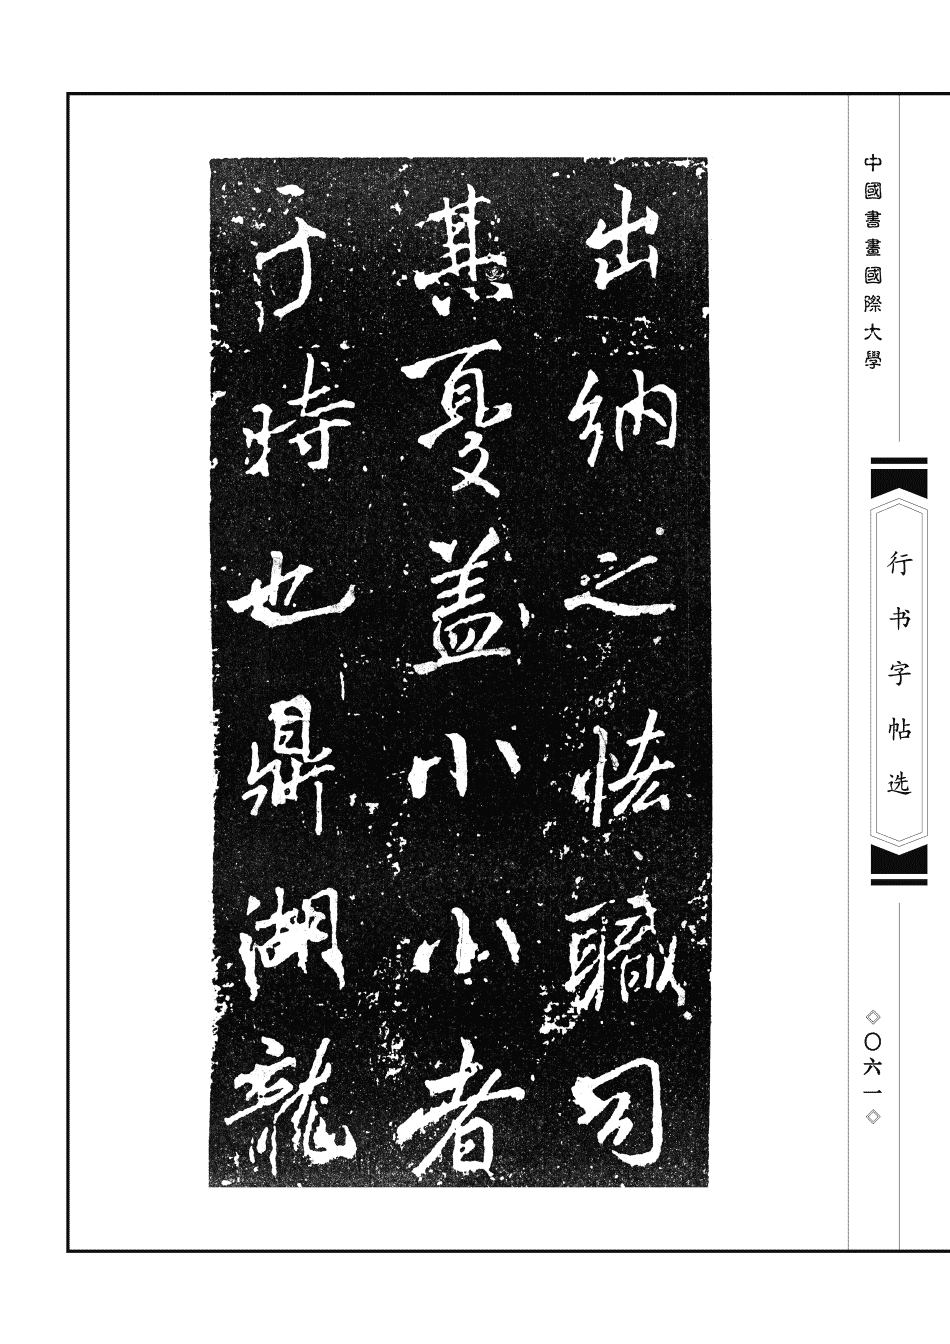 中國書畫國際大學
行书字帖选
〇六一
出納之恡職司
其憂盖小小者
于時也鼎湖龍